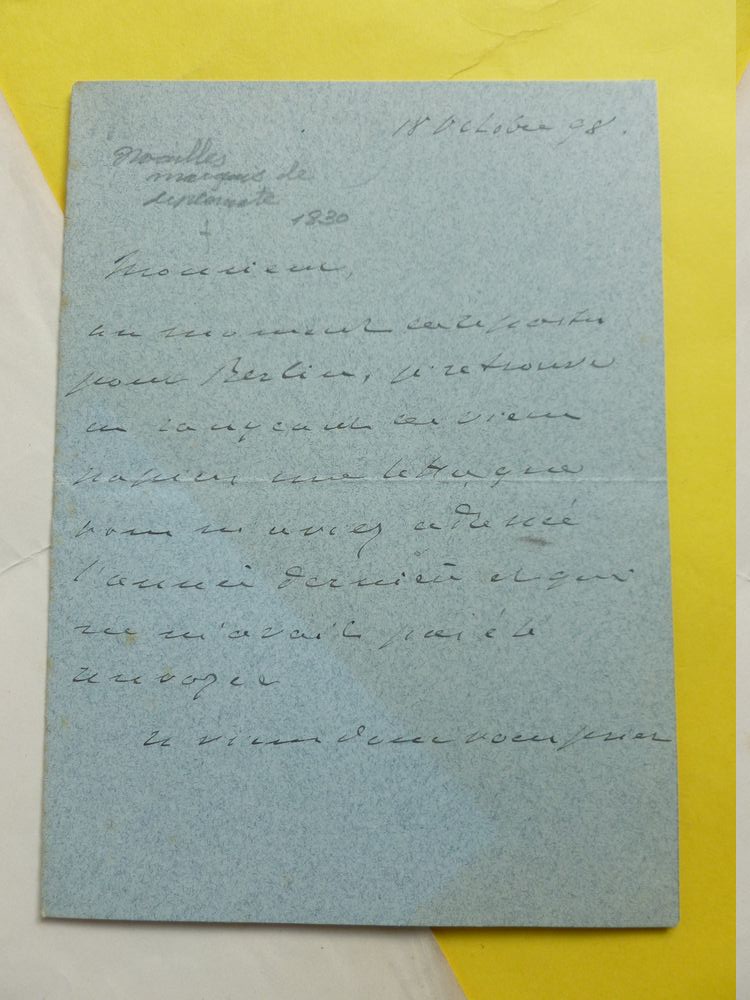 18 Octobre 98.
Noailles
marquis de
diplomate
1830
Monsieur,
au moment de repartir
pour Berlin, je retrouve
en rangeant de vieux
papiers une lettre que
vous m'aviez adressé
l'année dernière et qui
ne m'avait pas été
envoyée
Je viens donc vous prier